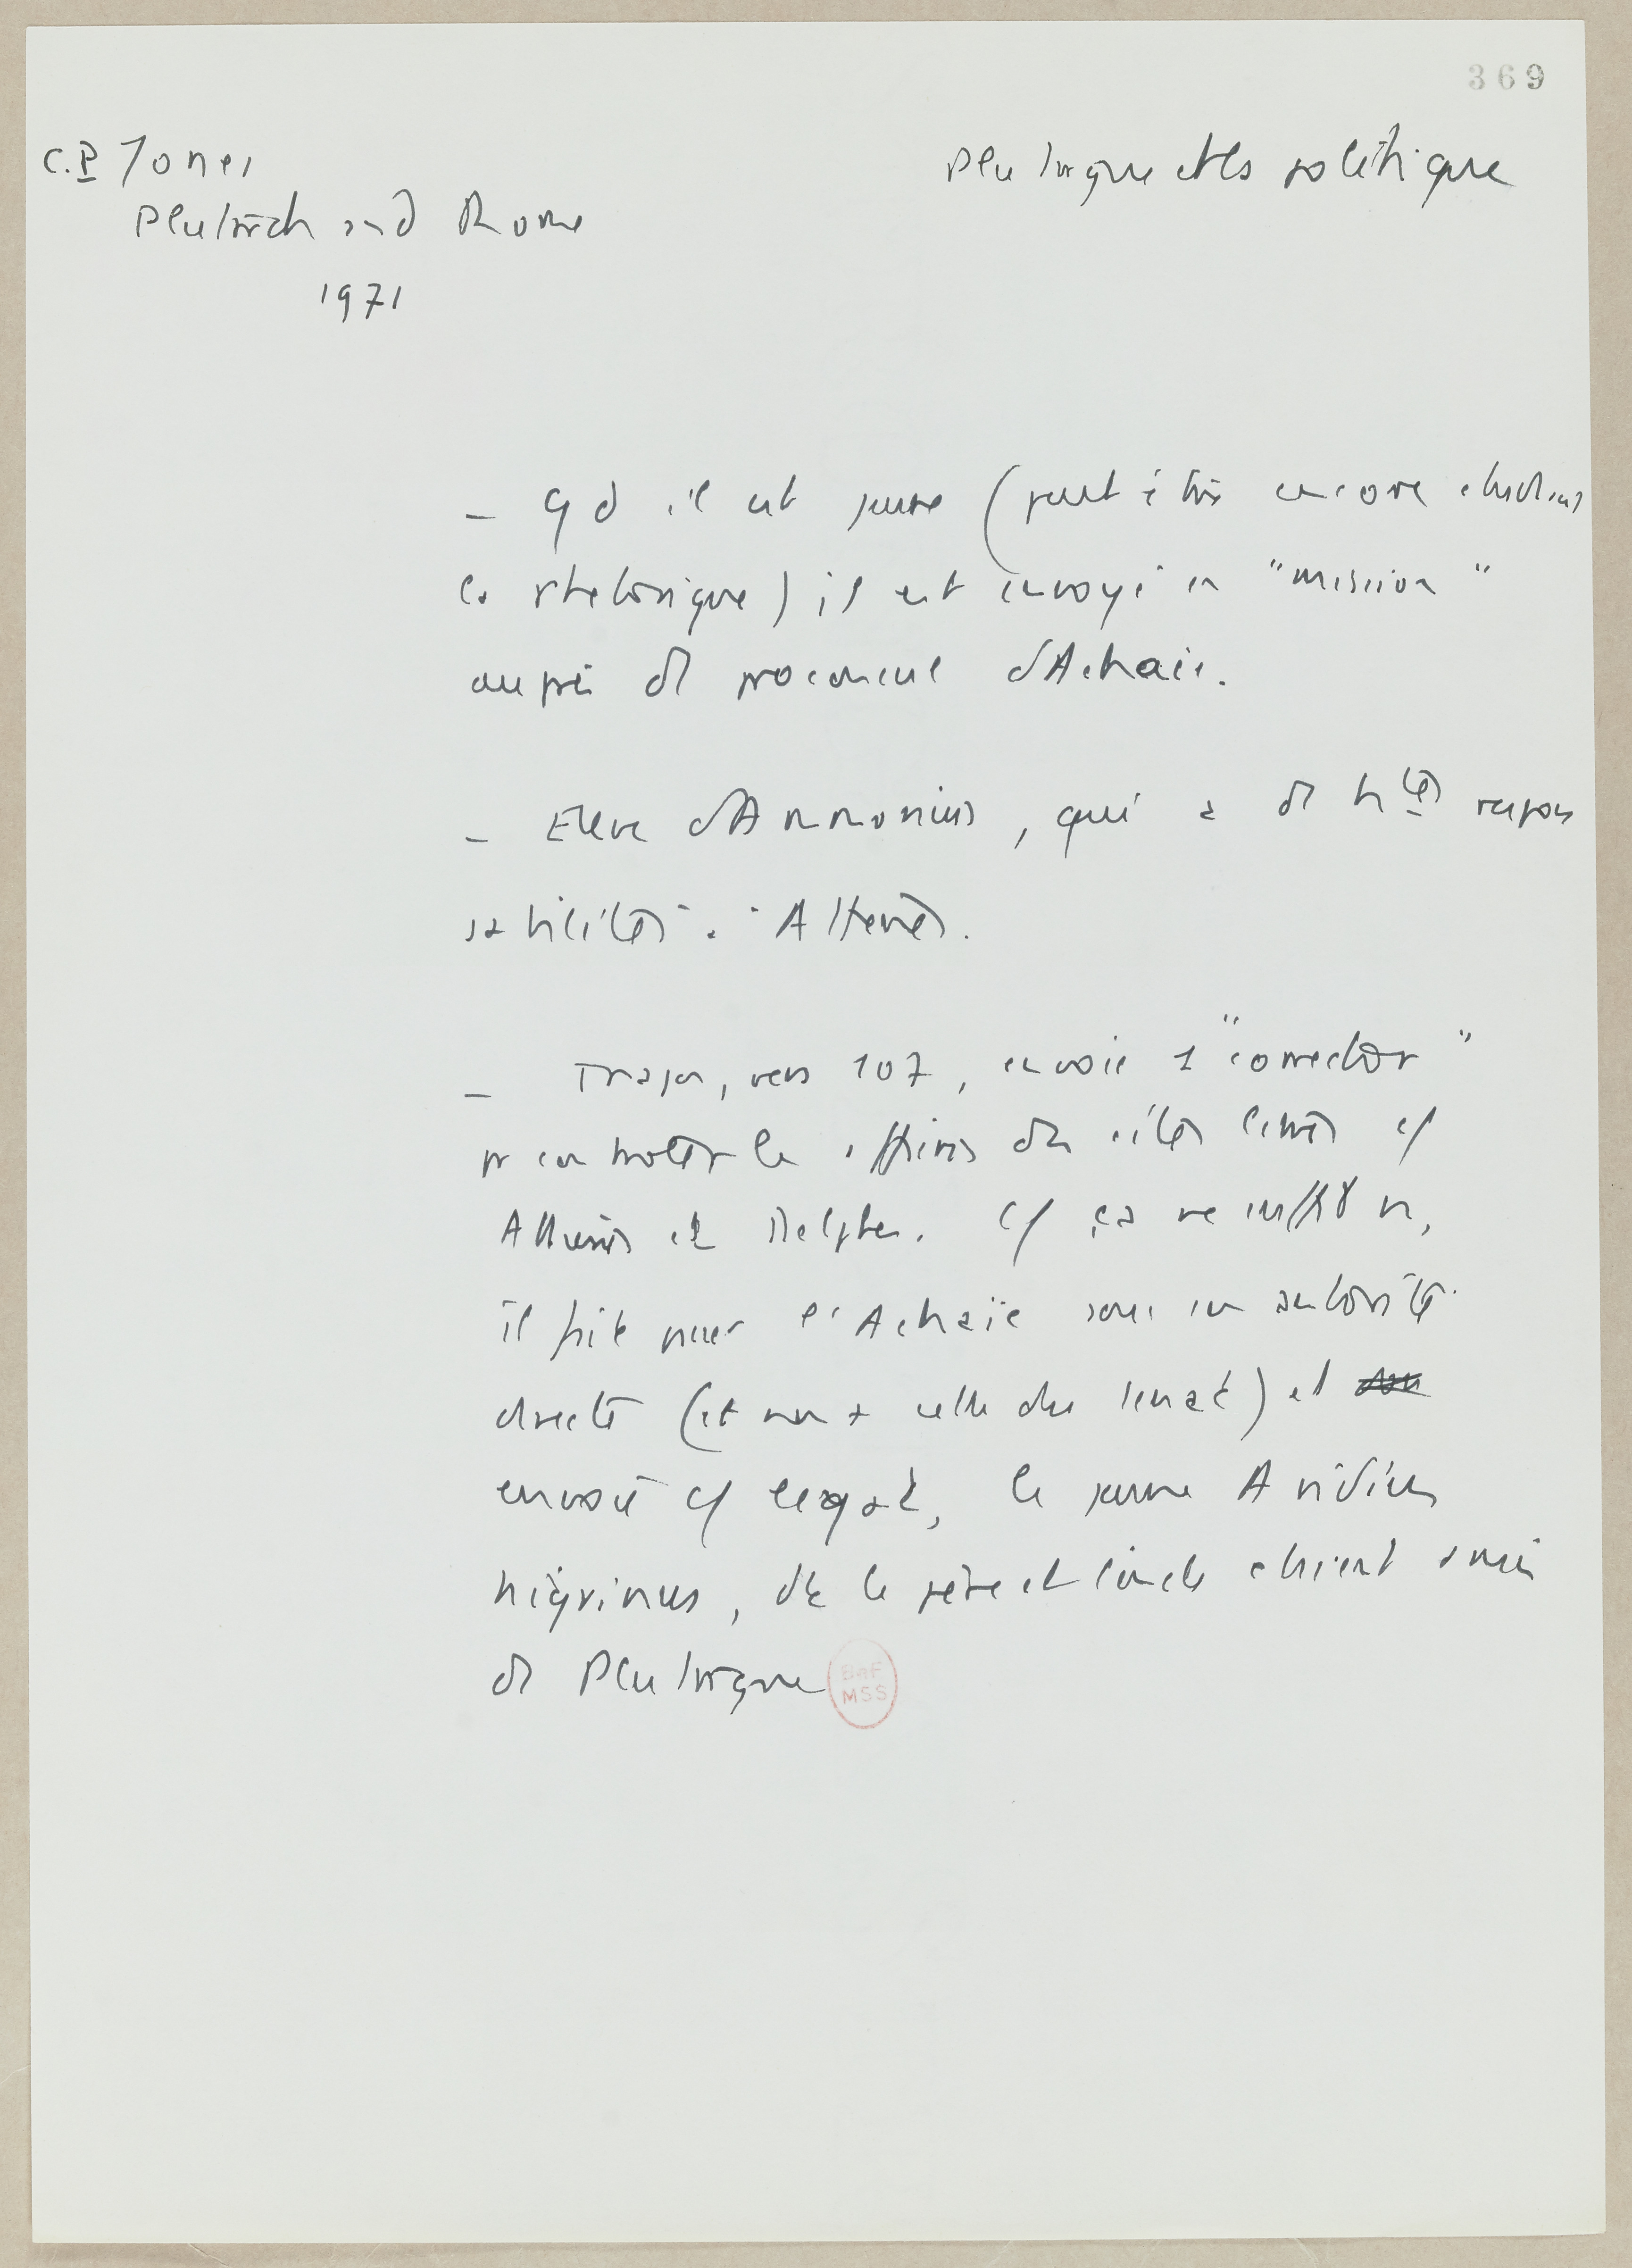 369
C.P Jones
Plutarch and Rome
1971
Plutarque et la politique
– Qd il est jeune (peut être encore étudiant
la rhétorique) il est envoyé en "mission"
auprès du proconsul d'Achaie.
– Elève d'Ammonius, qui a de htes respon
sabilités à Athènes.
– Trajan, vers 107, envoie 1 "corrector"
pr controler les affaires des cités libres cf
Athènes et Delphes. Cf ça ne suffit pas,
il fait passer l'Achaïe sous son autorité
directe (et non + celle du Senat) et
envoie cf legat, le jeune Avidius
Nigrinus, dt le père et l'oncle étaient amis
de Plutarque
BnF
MSS